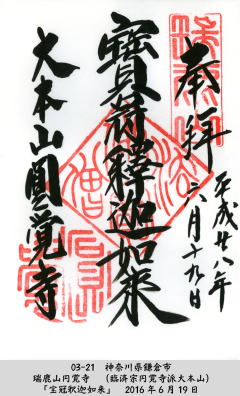 奉拝
平成廿八年
六月十九日
寶冠釋迦如来
大本山圓覚寺
03-21 神奈川県鎌倉市
瑞鹿山円覚寺 （臨済宗円覚寺派大本山）
「宝冠釈迦如来」 2016年6月19日